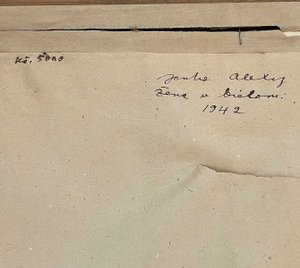 Kč, 5000
Janko Alexy
Žena v bielom.
1942